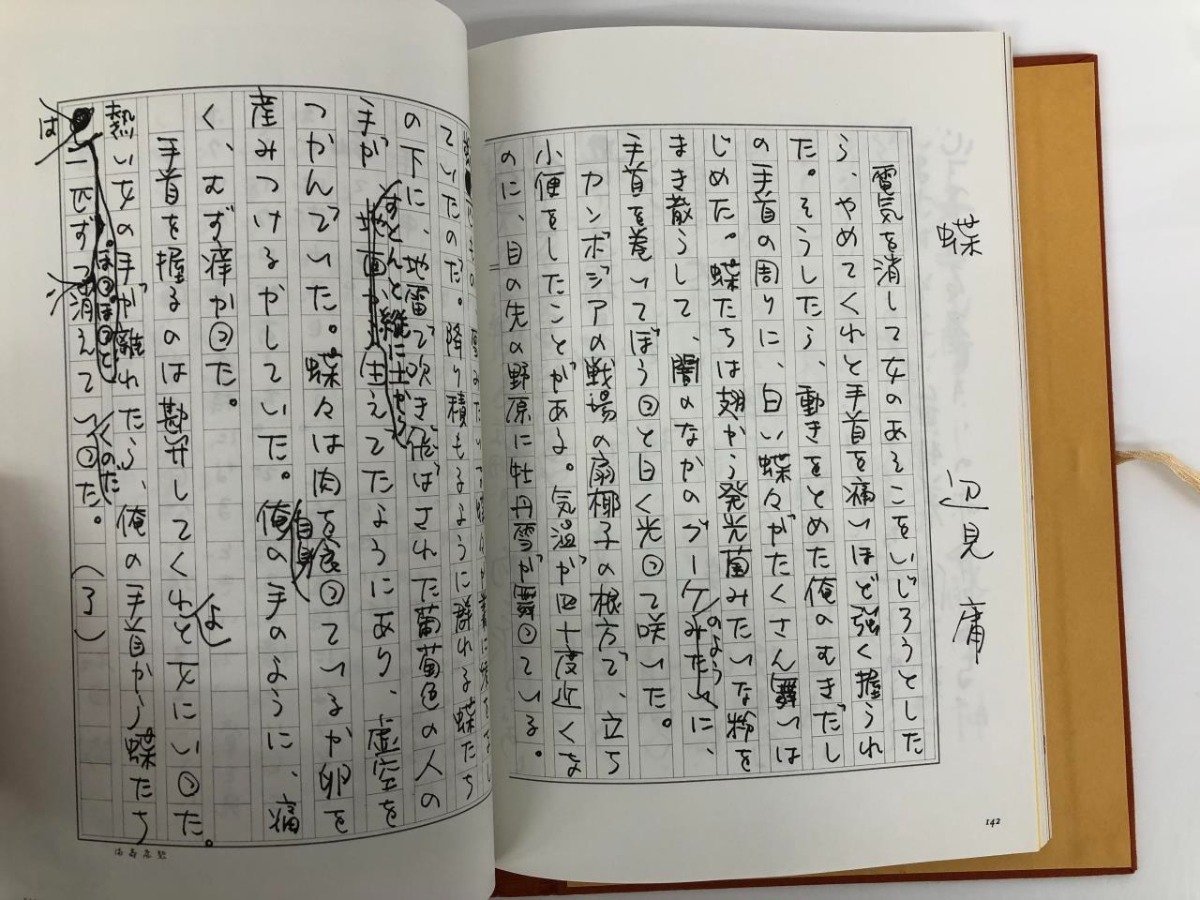 蝶
辺見 庸
電気を消して女のあそこをいじろうとした
ら、やめてくれと手首を痛いほど強く握られ
た。そうしたら、動きをとめた俺のむきだし
の手首の周りに、白い蝶々がたくさん舞いは
じめた。蝶たちは翅から発光菌みたいな粉を
まき散らして、闇のなかのブーケみたいに、
のよう
手首を巻いてぼうっと白く光って咲いた。
カンボジアの戦場の扇椰子の根方で、立ち
小便をしたことがある。気温が四十度近くな
のに、目の先の野原に牡丹雪が舞っている。
142
ていたのだ。降り積もるように群れる蝶たち
の下に、地雷で吹き飛ばされた葡萄色の人の
すとんと縦に土から
手が地面から生えてたようにあり、虚空を
つかんでいた。蝶々は肉を食っているか卵を
産みつけるかしていた。俺の手のように、痛
自身
く、むず痒かった。
手首を握るのは勘弁してくれと女にいった。
よ
熱い女の手が離れたら、俺の手首から蝶たち
ぽっぽっと
くのだ
は
一匹ずつ消えていった。(了)